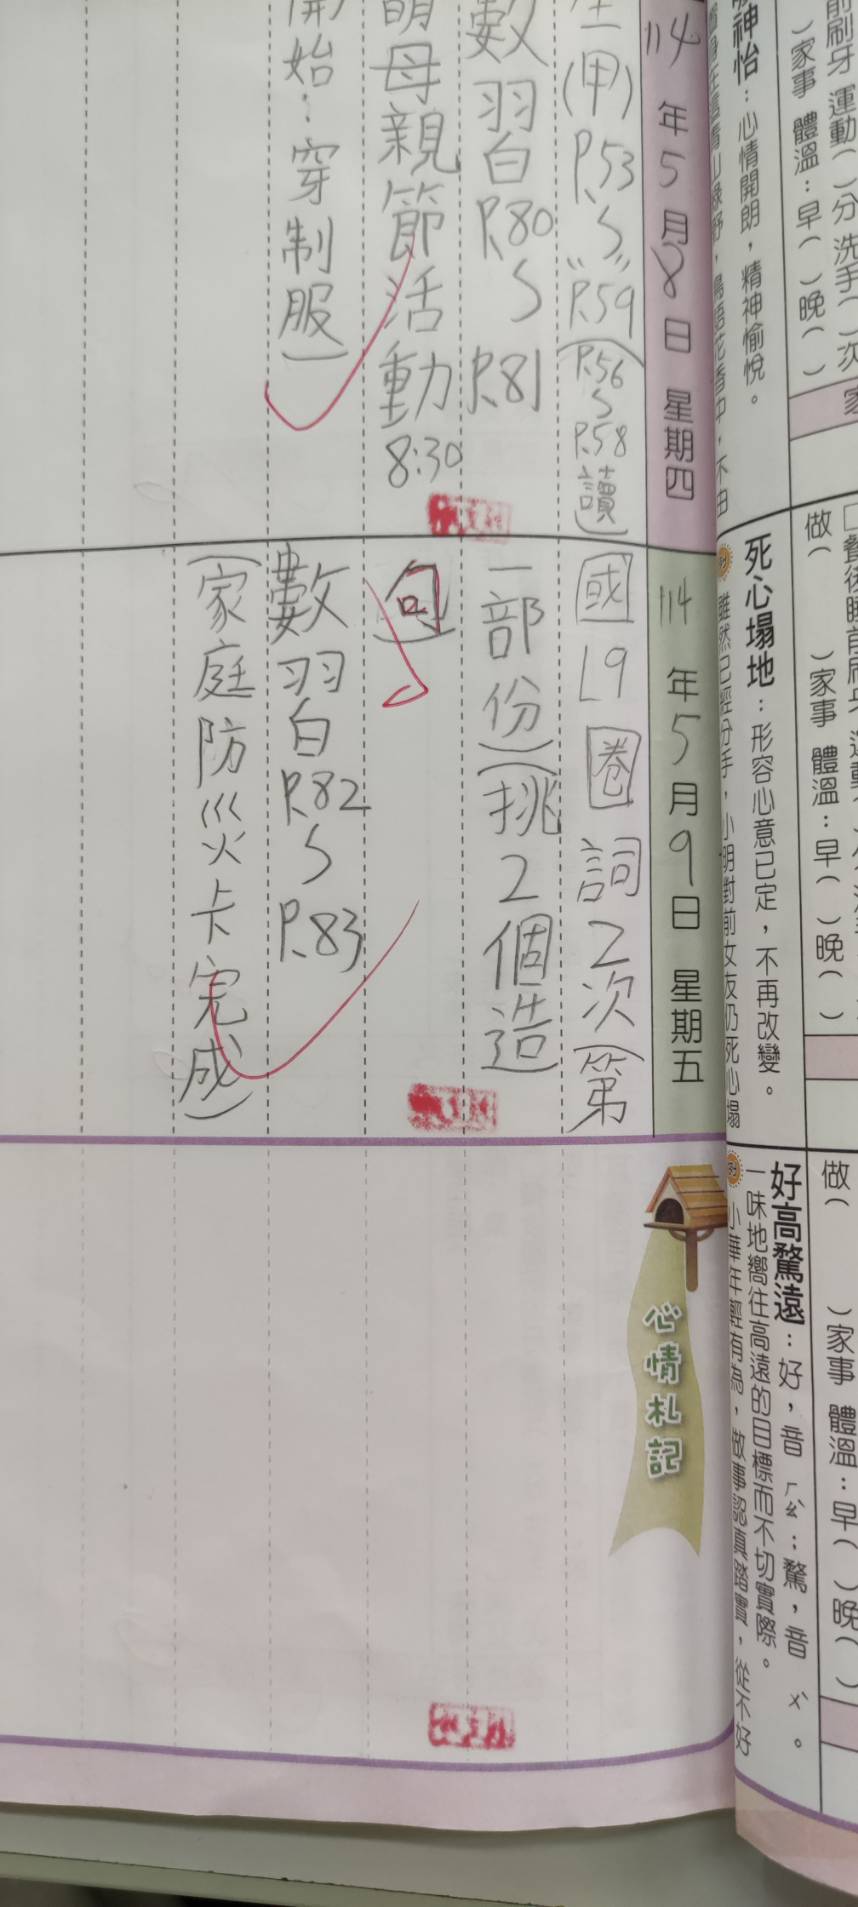 114年5月8日 星期四
(甲) P.53~P.59 (P.56~P.58讀)
數習白P.80~P.81
母親節活動8:30
開始:穿制服)
114年5月9日 星期五
國L9圈詞2次(第
一部份)(挑2個造
句)
數習白P.82~P.83
(家庭防災卡完成)
心情札記
神怡:心情開朗,精神愉悅。
死心塌地:形容心意已定,不再改變。
雖然已經分手,小明對前女友仍死心塌
好高騖遠:好,音ㄏㄠˋ;騖,音ㄨˋ。
一味地嚮往高遠的目標而不切實際。
小華年輕有為,做事認真踏實,從不好
前刷牙 運動( )分 洗手( )次
)家事 體溫:早( )晚( )
做( )家事 體溫:早( )晚( )
做( )家事 體溫:早( )晚( )